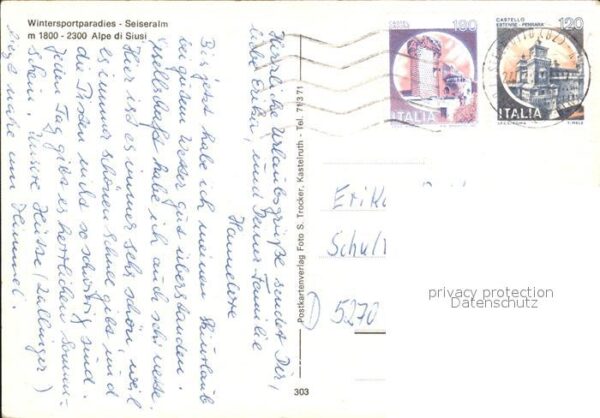 Wintersportparadies - Seiseralm
m 1800 - 2300 Alpe di Siusi
Bis jetzt habe ich meinen Skiurlaub
bei gutem Wetter gut überstanden.
habe ich auch
Hier ist es immer sehr schön, weil
es immer schönen Schnee gibt, und
die Pisten nicht so schwierig sind.
Jeden Tag gibt es herrlichen Sonnen-
schein. Unsere Hütte (Zallinger)
liegt nahe am Himmel.
Herzliche Urlaubsgrüße sendet Dir,
liebe Erika, und Deiner Familie
Hannelore
Postkartenverlag Foto S. Trocker, Kastelruth - Tel. 71371
303
CASTELLO
180
ITALIA
CASTELLO
ESTENSE - FERRARA
120
ITALIA
Erika
Schul
D 5270
privacy protection
Datenschutz